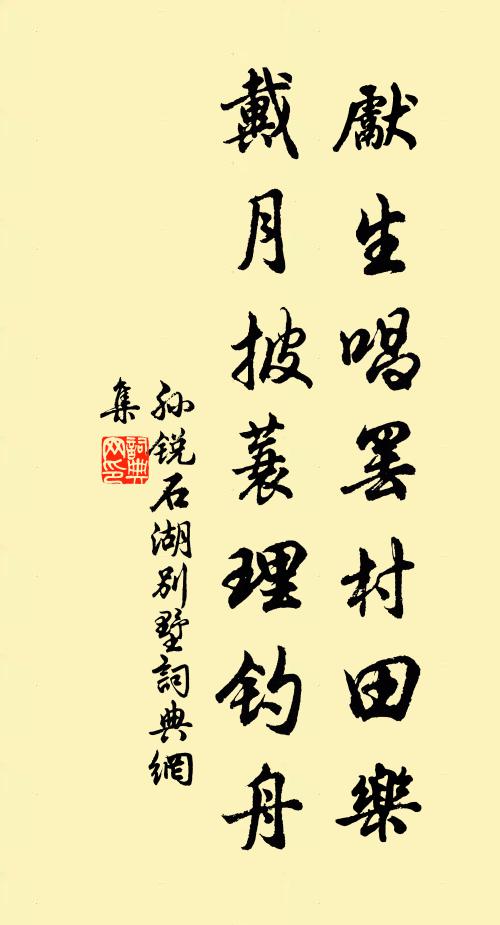 獻生唱罢村田樂
戴月披蓑理钓舟
孙锐石湖别墅詞典網
集
詞典网印